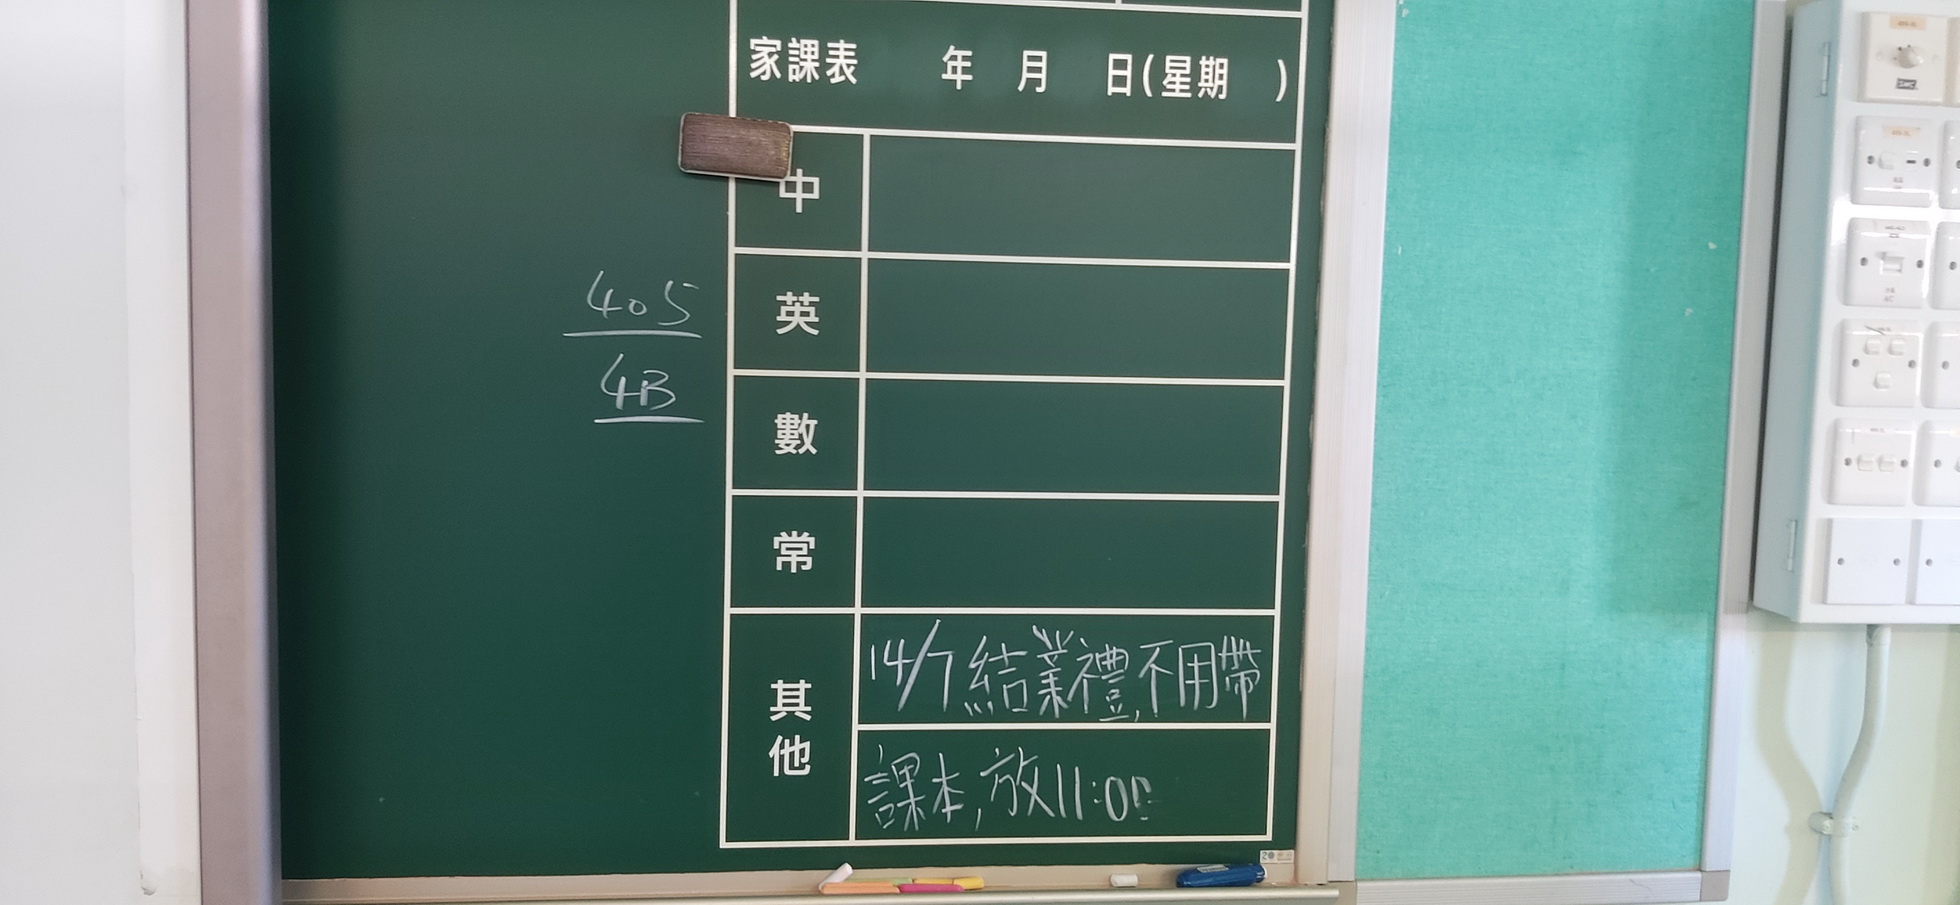 家課表 年 月 日(星期 )
中
405
英
4B
數
常
其他
14/7結業禮,不用帶
課本,放11:00